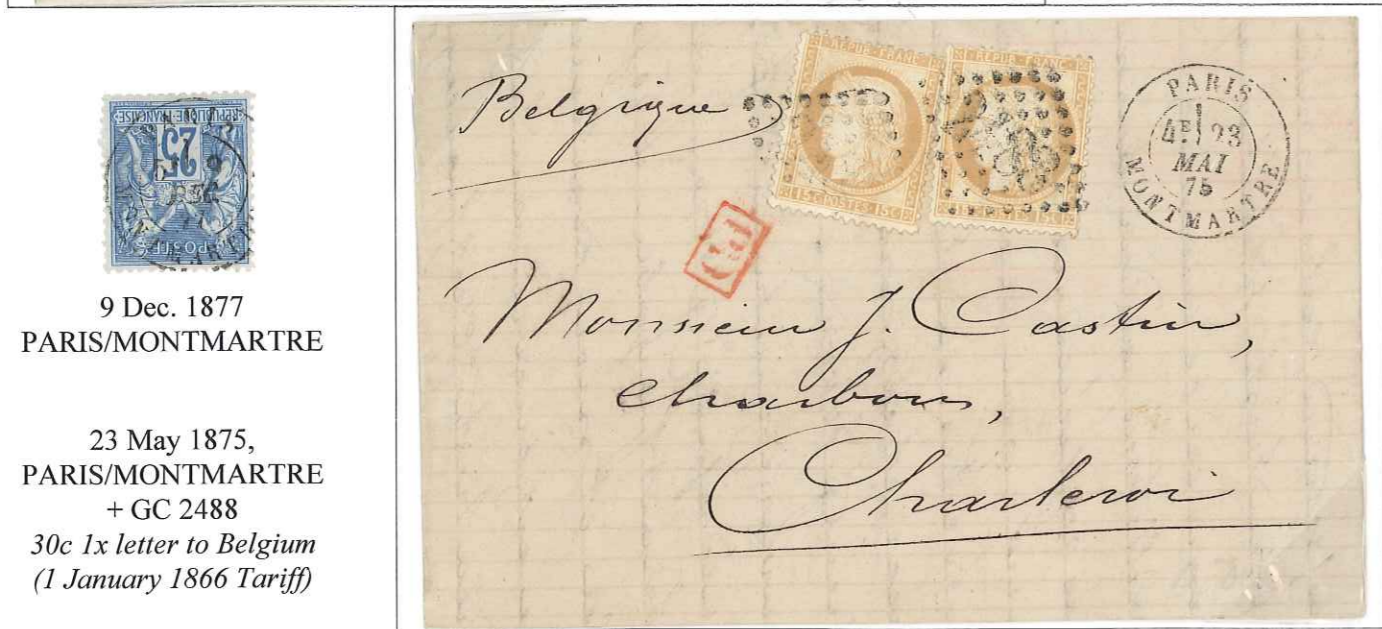 REPUBLIQUE FRANCAISE
25
9
DEC
POSTE
9 Dec. 1877
PARIS/MONTMARTRE
23 May 1875,
PARIS/MONTMARTRE
+ GC 2488
30c 1x letter to Belgium
(1 January 1866 Tariff)
Belgique
REPUB FRANC
15 C POSTES 15 C
REPUB FRANC
15 C
PARIS
4E 23
MAI
75
MONTMARTRE
PD
Monsieur J. Castin,
charbons,
Charleroi